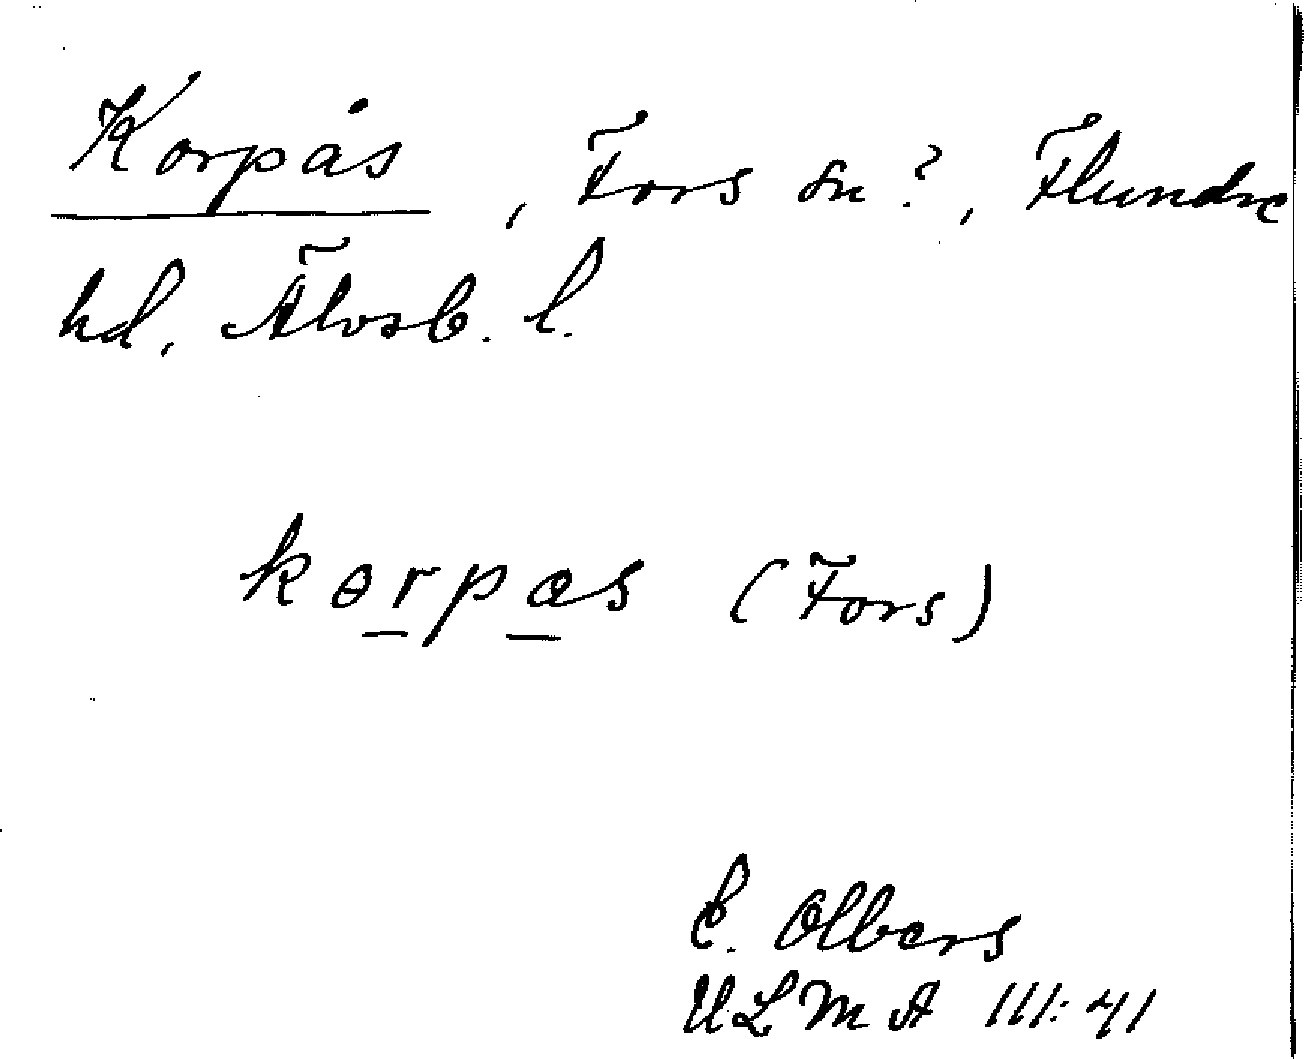 Korpås, Fors sn?, Flundre
hd, Älvsb. l.
kørpas (Fors)
E. Olbers
ULMA 111:41